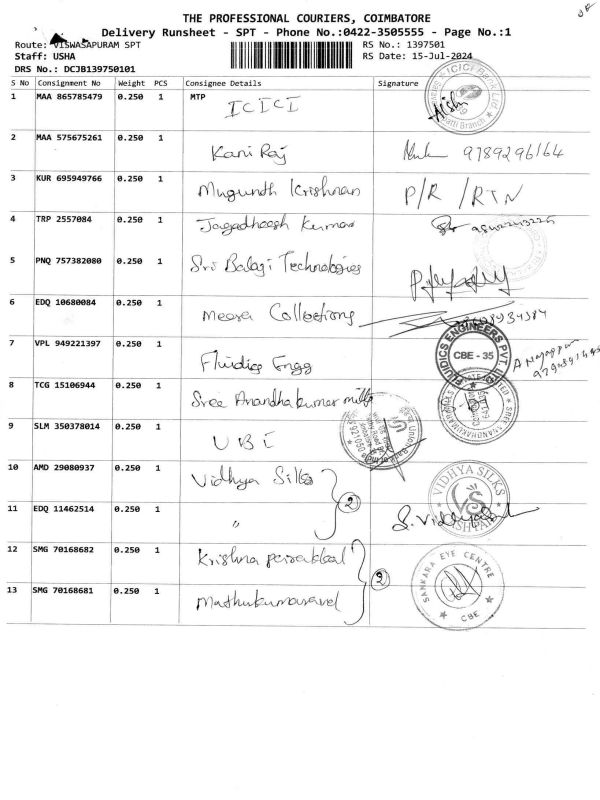 THE PROFESSIONAL COURIERS, COIMBATORE
Delivery Runsheet - SPT - Phone No.:0422-3505555 - Page No.:1
Route: VISWASAPURAM SPT RS No.: 1397501
Staff: USHA RS Date: 15-Jul-2024
DRS No.: DCJB139750101
S No Consignment No Weight PCS Consignee Details Signature
1 MAA 865785479 0.250 1 MTP
ICICI
ICICI Bank Ltd
Branch
2 MAA 575675261 0.250 1
Kani Raj 9789296164
3 KUR 695949766 0.250 1
Mugundh Krishnan P/R /RTN
4 TRP 2557084 0.250 1
Jagadheesh Kumar
5 PNQ 757382080 0.250 1
Sri Balaji Technologies
6 EDQ 10680084 0.250 1
Meera Collections
7 VPL 949221397 0.250 1
Fluidics Engg
FLUIDICS ENGINEERS PVT. LTD
CBE - 35
8 TCG 15106944 0.250 1
Sree Anandhakumar mills
9 SLM 350378014 0.250 1
UBI
10 AMD 29080937 0.250 1
Vidhya Silks
2
VIDHYA SILKS
VS
11 EDQ 11462514 0.250 1
"
12 SMG 70168682 0.250 1
Krishna
SANKARA EYE CENTRE
CBE
13 SMG 70168681 0.250 1
Muthukumaravel